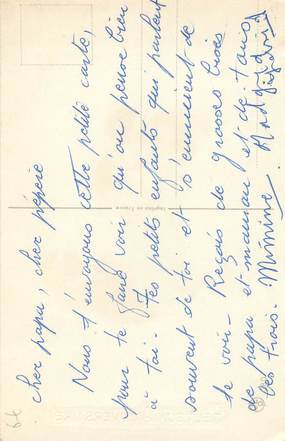 cher papa, cher pépère
Nous t'envoyons cette petite carte,
pour te faire voir qu'on pense bien
à toi. Tes petits enfants qui parlent
souvent de toi et s'ennuient de
te voir - Reçois de grosses bises
de papa et maman et de tous
les trois. Mimine.
Imprimé en France